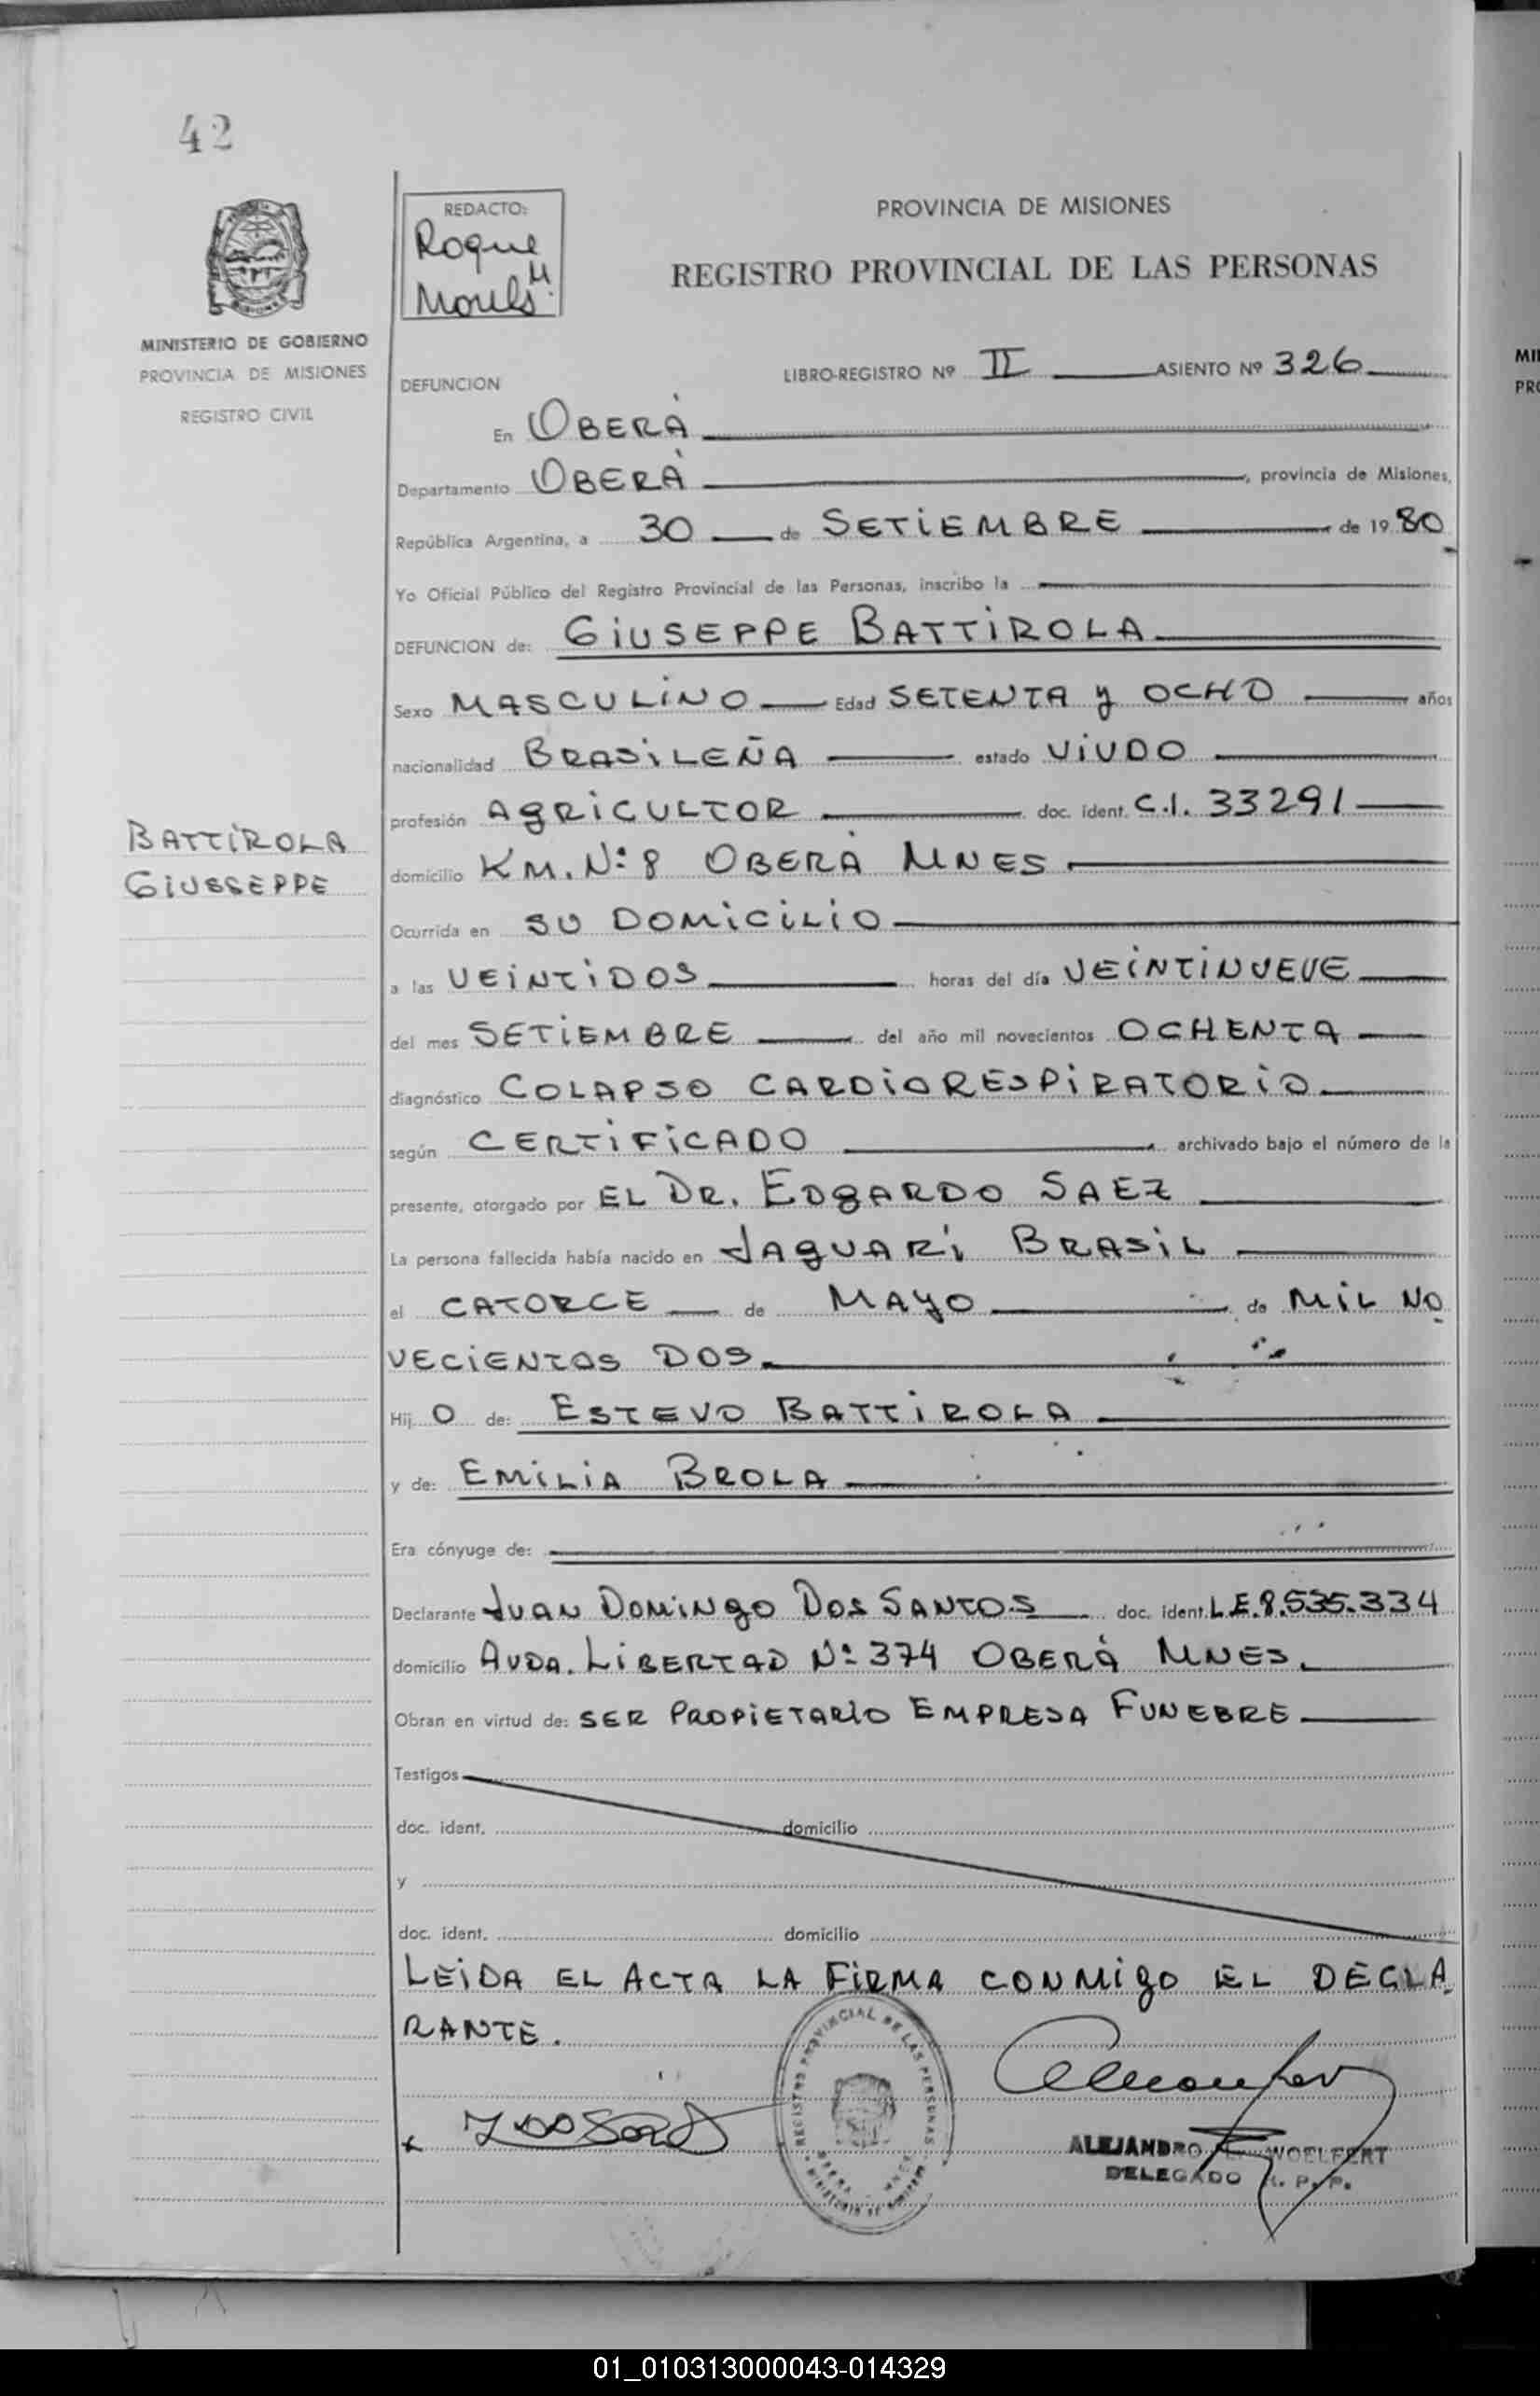 42
REDACTO:
Roque
M.
PROVINCIA DE MISIONES
REGISTRO PROVINCIAL DE LAS PERSONAS
MINISTERIO DE GOBIERNO
PROVINCIA DE MISIONES
REGISTRO CIVIL
DEFUNCION LIBRO-REGISTRO Nº II ASIENTO Nº 326
En OBERÁ
Departamento OBERÁ, provincia de Misiones,
República Argentina, a 30 de SETIEMBRE de 1980
Yo Oficial Público del Registro Provincial de las Personas, inscribo la
DEFUNCION de: GIUSEPPE BATTIROLA
Sexo MASCULINO Edad SETENTA y OCHO años
nacionalidad BRASILEÑA estado VIUDO
profesión AGRICULTOR doc. ident. C.I. 33291
BATTIROLA
GIUSSEPPE
domicilio KM. Nº 8 OBERÁ MNES
Ocurrida en SU DOMICILIO
a las VEINTIDOS horas del día VEINTINUEVE
del mes SETIEMBRE del año mil novecientos OCHENTA
diagnóstico COLAPSO CARDIORESPIRATORIO
según CERTIFICADO archivado bajo el número de la
presente, otorgado por EL DR. EDGARDO SAEZ
La persona fallecida había nacido en JAGUARI BRASIL
el CATORCE de MAYO de MIL NO
VECIENTOS DOS
Hij O de: ESTEVO BATTIROLA
y de: EMILIA BROLA
Era cónyuge de:
Declarante JUAN DOMINGO DOS SANTOS doc. ident. L.E. 8.535.334
domicilio AVDA. LIBERTAD Nº 374 OBERÁ MNES.
Obran en virtud de: SER PROPIETARIO EMPRESA FUNEBRE
Testigos
doc. ident. domicilio
y
doc. ident. domicilio
LEIDA EL ACTA LA FIRMA CONMIGO EL DECLA
RANTE.
REGISTRO PROVINCIAL DE LAS PERSONAS
ALEJANDRO WOELFERT
DELEGADO R. P. P.
01_010313000043-014329